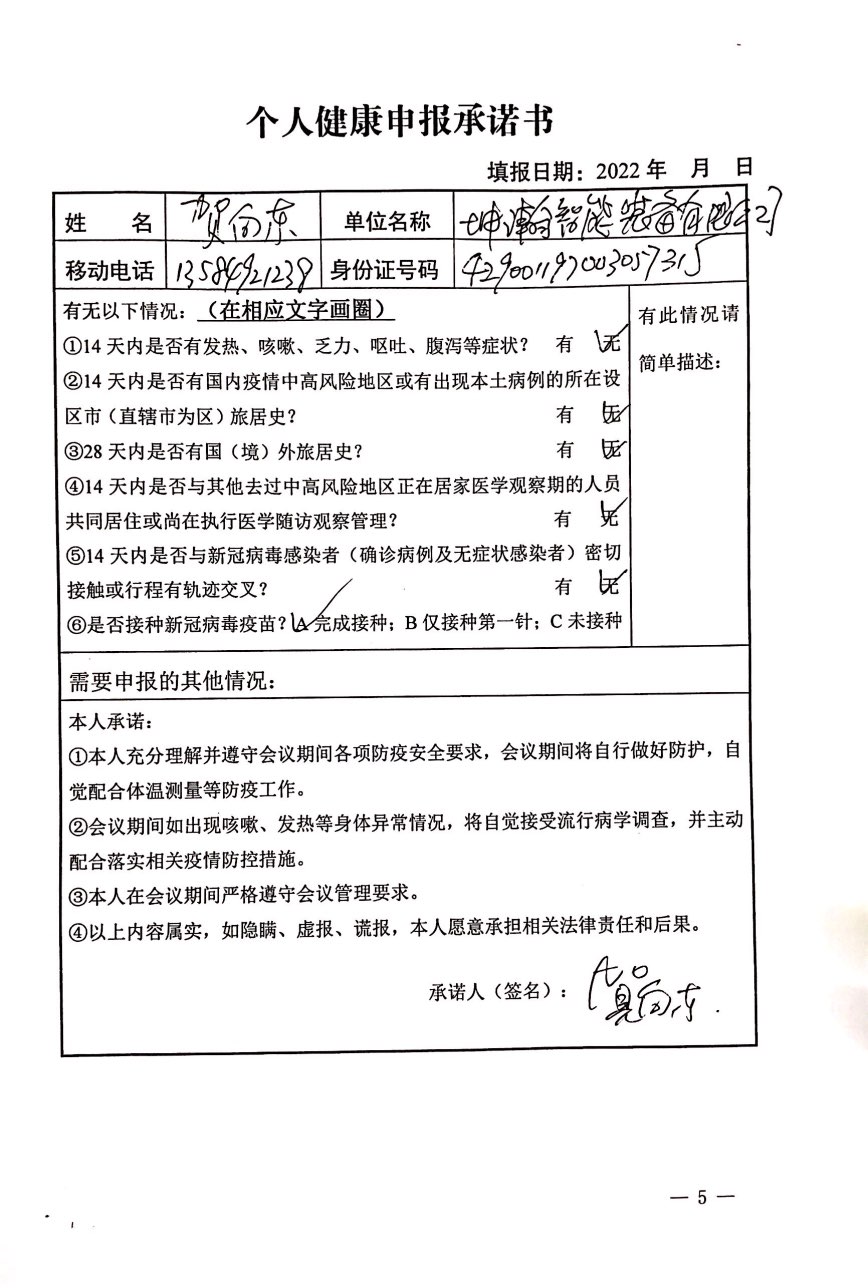 个人健康申报承诺书
填报日期：2022年 月 日
姓 名 贺向东 单位名称 坤瀚智能装备有限公司
移动电话 13584921239 身份证号码 429001197003057315
有无以下情况：（在相应文字画圈） 有此情况请
①14天内是否有发热、咳嗽、乏力、呕吐、腹泻等症状？ 有 无 简单描述：
②14天内是否有国内疫情中高风险地区或有出现本土病例的所在设
区市（直辖市为区）旅居史？ 有 无
③28天内是否有国（境）外旅居史？ 有 无
④14天内是否与其他去过中高风险地区正在居家医学观察期的人员
共同居住或尚在执行医学随访观察管理？ 有 无
⑤14天内是否与新冠病毒感染者（确诊病例及无症状感染者）密切
接触或行程有轨迹交叉？ 有 无
⑥是否接种新冠病毒疫苗？A完成接种；B仅接种第一针；C未接种
需要申报的其他情况：
本人承诺：
①本人充分理解并遵守会议期间各项防疫安全要求，会议期间将自行做好防护，自
觉配合体温测量等防疫工作。
②会议期间如出现咳嗽、发热等身体异常情况，将自觉接受流行病学调查，并主动
配合落实相关疫情防控措施。
③本人在会议期间严格遵守会议管理要求。
④以上内容属实，如隐瞒、虚报、谎报，本人愿意承担相关法律责任和后果。
承诺人（签名）：贺向东
— 5 —